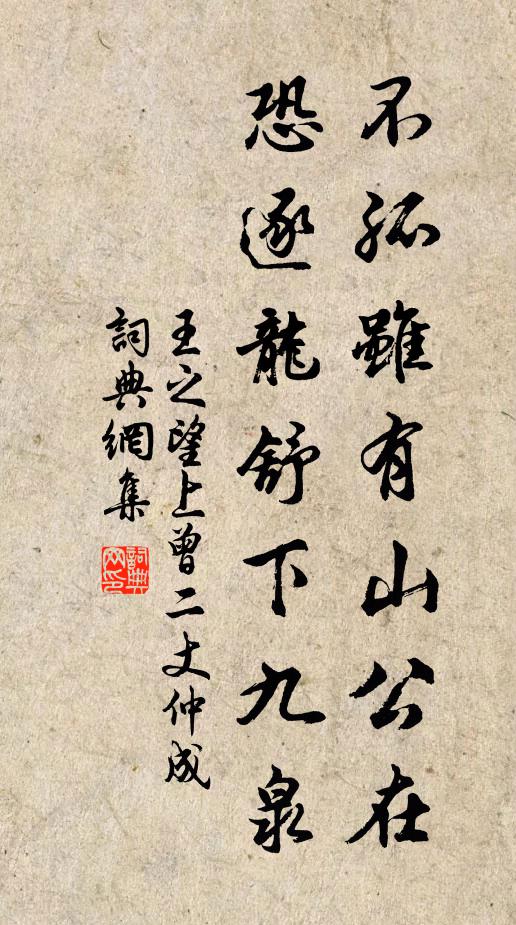 不孤雖有山公在
恐逐龍舒下九泉
王之望上曾二丈仲成
詞典網集
詞典网印